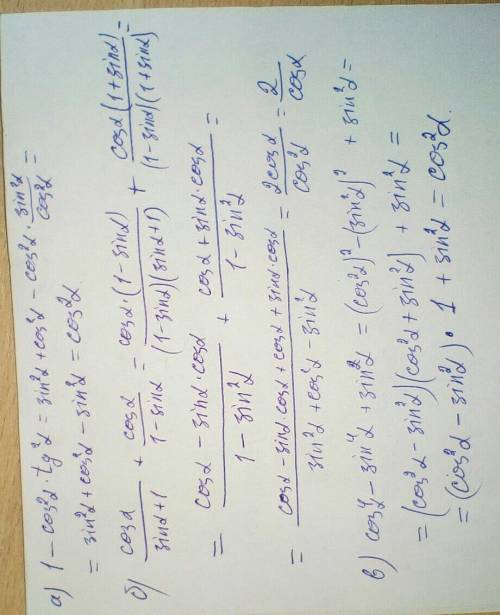 а) 1 - cos²α · tg²α = sin²α + cos²α - cos²α · sin²α/cos²α =
= sin²α + cos²α - sin²α = cos²α
б) cosα/(sinα+1) + cosα/(1-sinα) = cosα·(1-sinα)/((1-sinα)(sinα+1)) + cosα(1+sinα)/((1-sinα)(1+sinα)) =
= (cosα - sinα·cosα)/(1-sin²α) + (cosα + sinα·cosα)/(1-sin²α) =
= (cosα - sinα·cosα + cosα + sinα·cosα)/(sin²α + cos²α - sin²α) = 2cosα/cos²α = 2/cosα
в) cos⁴α - sin⁴α + sin²α = (cos²α)² - (sin²α)² + sin²α =
= (cos²α - sin²α)(cos²α + sin²α) + sin²α =
= (cos²α - sin²α) · 1 + sin²α = cos²α.